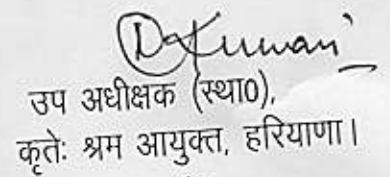 D Kumari
उप अधीक्षक (स्था0),
कृतेः श्रम आयुक्त, हरियाणा।